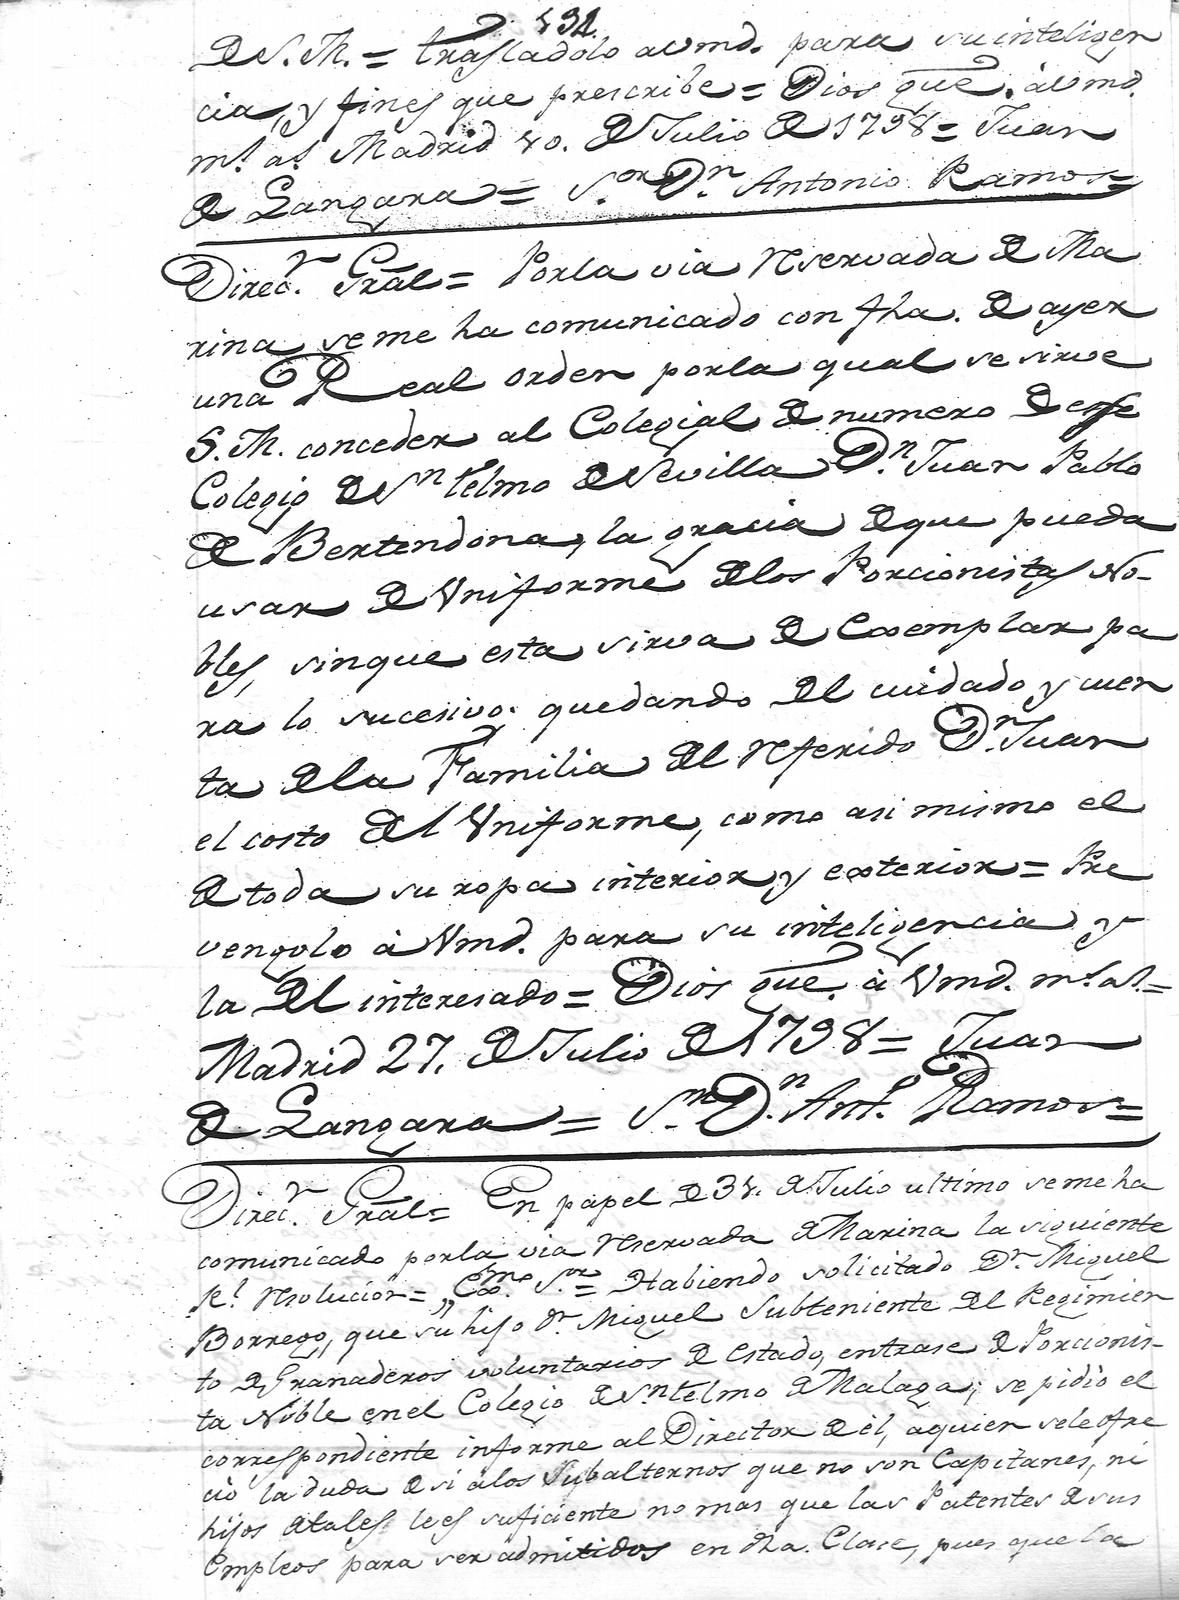 131.
de S. M. = trasladolo a Vmd. para su inteligen
cia, y fines que prescribe = Dios gue. à Vmd.
ms. as. Madrid 20. de Julio de 1798 = Juan
de Langara = Sor. Dn. Antonio Ramos =
Direcr. Gral = Por la via reservada de Ma
rina se me ha comunicado con fha. de ayer
una Real orden por la qual se sirve
S. M. conceder al Colegial de numero de esse
Colegio de Sn telmo de Sevilla Dn. Juan Pablo
de Bertendona, la gracia de que pueda
usar de Vniforme de los Porcionistas No-
bles, sin que esta sirva de Exemplar pa
ra lo sucesivo: quedando del cuidado y cuen
ta de la Familia del referido Dn. Juan
el costo del Vniforme, como asi mismo el
de toda su ropa interior, y exterior = Pre
vengolo à Vmd. para su inteligencia y
la del interesado = Dios gue. à Vmd. ms. as. =
Madrid 27. de Julio de 1798 = Juan
de Langara = Sr. Dn. Anto. Ramos =
Direcr. Gral = En papel de 31. de Julio ultimo se me ha
comunicado por la via reservada de Marina la siguiente
Rl. resolucion = „Exmo. Sor. = Habiendo solicitado Dn. Miguel
Borrego, que su hijo Dn. Miguel Subteniente del Regimien
to de Granaderos voluntarios de Estado, entrase de Porcionis-
ta Noble en el Colegio de Sn. telmo de Malaga; se pidiò el
correspondiente informe al Director de èl, a quien se le ofre
ciò la duda de si à los Subalternos que no son Capitanes, ni
hijos de tales les es suficiente no mas que las Patentes de sus
Empleos para ser admitidos en dha. Clase, pues que la